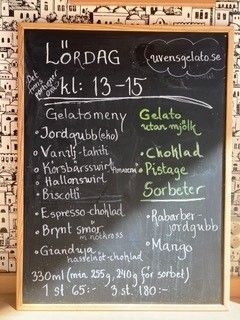 LÖRDAG
uvensgelato.se
kl: 13-15
Gelatomeny
Jordgubb (eko)
Vanilj-tahiti
Körsbärsswirl Amarena
Hallonswirl
Biscotti
Espresso-choklad
Brynt smör
m. nötkross
Gianduja
hasselnöt-choklad
Gelato
utan mjölk
Choklad
Pistage
Sorbeter
Rabarber-
jordgubb
Mango
330ml (min. 255g, 240g för sorbet)
1 st 65:- 3 st. 180:-